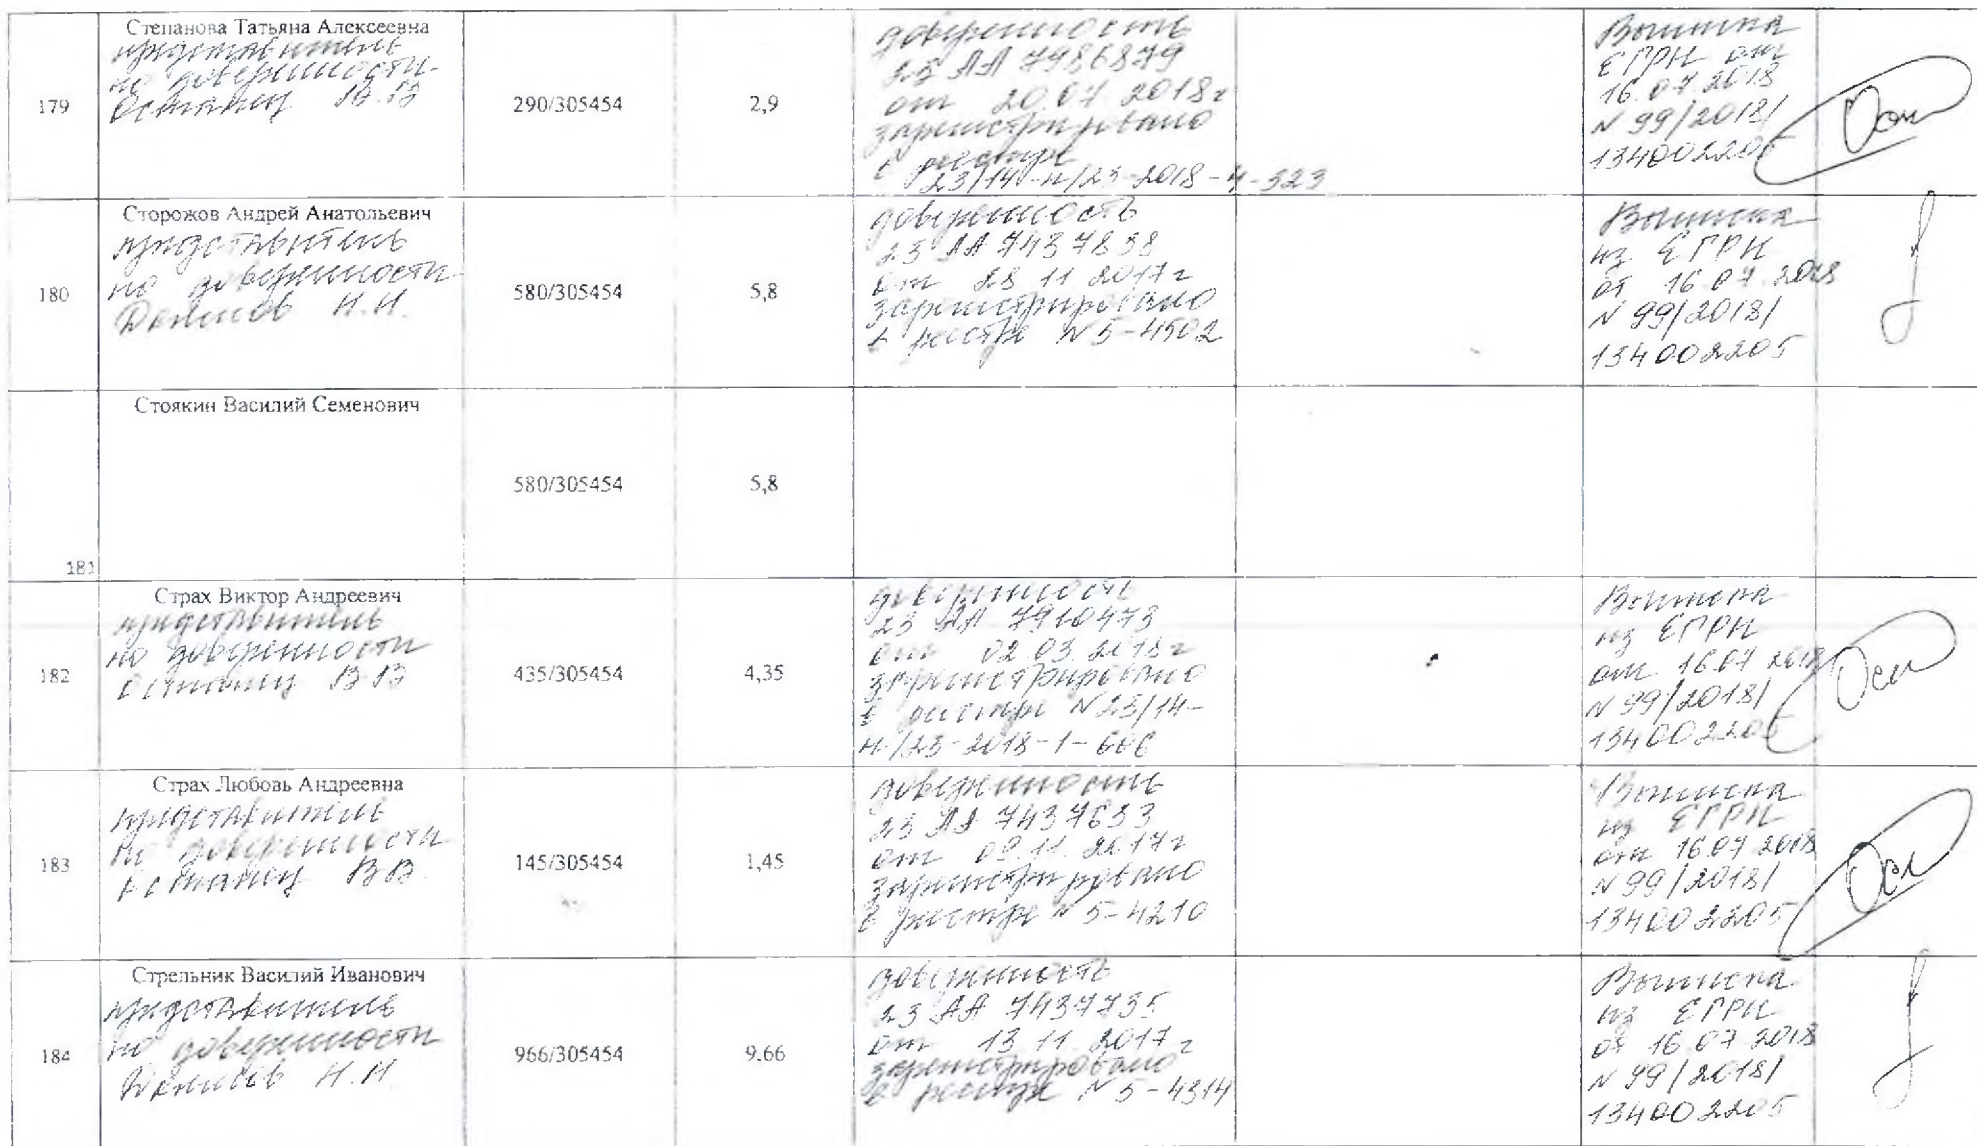 179
Степанова Татьяна Алексеевна
представитель
по доверенности
Останец В.В
290/305454
2,9
доверенность
23 АА 7986879
от 20.07.2018г
зарегистрировано
в реестре
23/14-н/23-2018-4-523
Выписка
ЕГРН от
16.07.2018
N 99/2018/
134002205
180
Сторожов Андрей Анатольевич
представитель
по доверенности
Денисов Н.Н.
580/305454
5,8
доверенность
23 АА 7437838
от 28 11 2017г
зарегистрировано
в реестре N 5-4502
Выписка
из ЕГРН
от 16.07.2018
N 99/2018/
134002205
181
Стоякин Василий Семенович
580/305454
5,8
182
Страх Виктор Андреевич
представитель
по доверенности
Останец В.В
435/305454
4,35
доверенность
23 АА 7910473
от 02.03.2018г
зарегистрировано
в реестре N 23/14-
н/23-2018-1-666
Выписка
из ЕГРН
от 16.07 2018
N 99/2018/
134002205
183
Страх Любовь Андреевна
представитель
по доверенности
Останец В.В.
145/305454
1,45
доверенность
23 АА 7437633
от 09.11.2017г
зарегистрировано
в реестре N 5-4210
Выписка
из ЕГРН
от 16.07 2018
N 99/2018/
134002205
184
Стрельник Василий Иванович
представитель
по доверенности
Денисов Н.Н
966/305454
9.66
доверенность
23 АА 7437735
от 13 11 2017г
зарегистрировано
в реестре N 5-4314
Выписка
из ЕГРН
от 16.07 2018
N 99/2018/
134002205